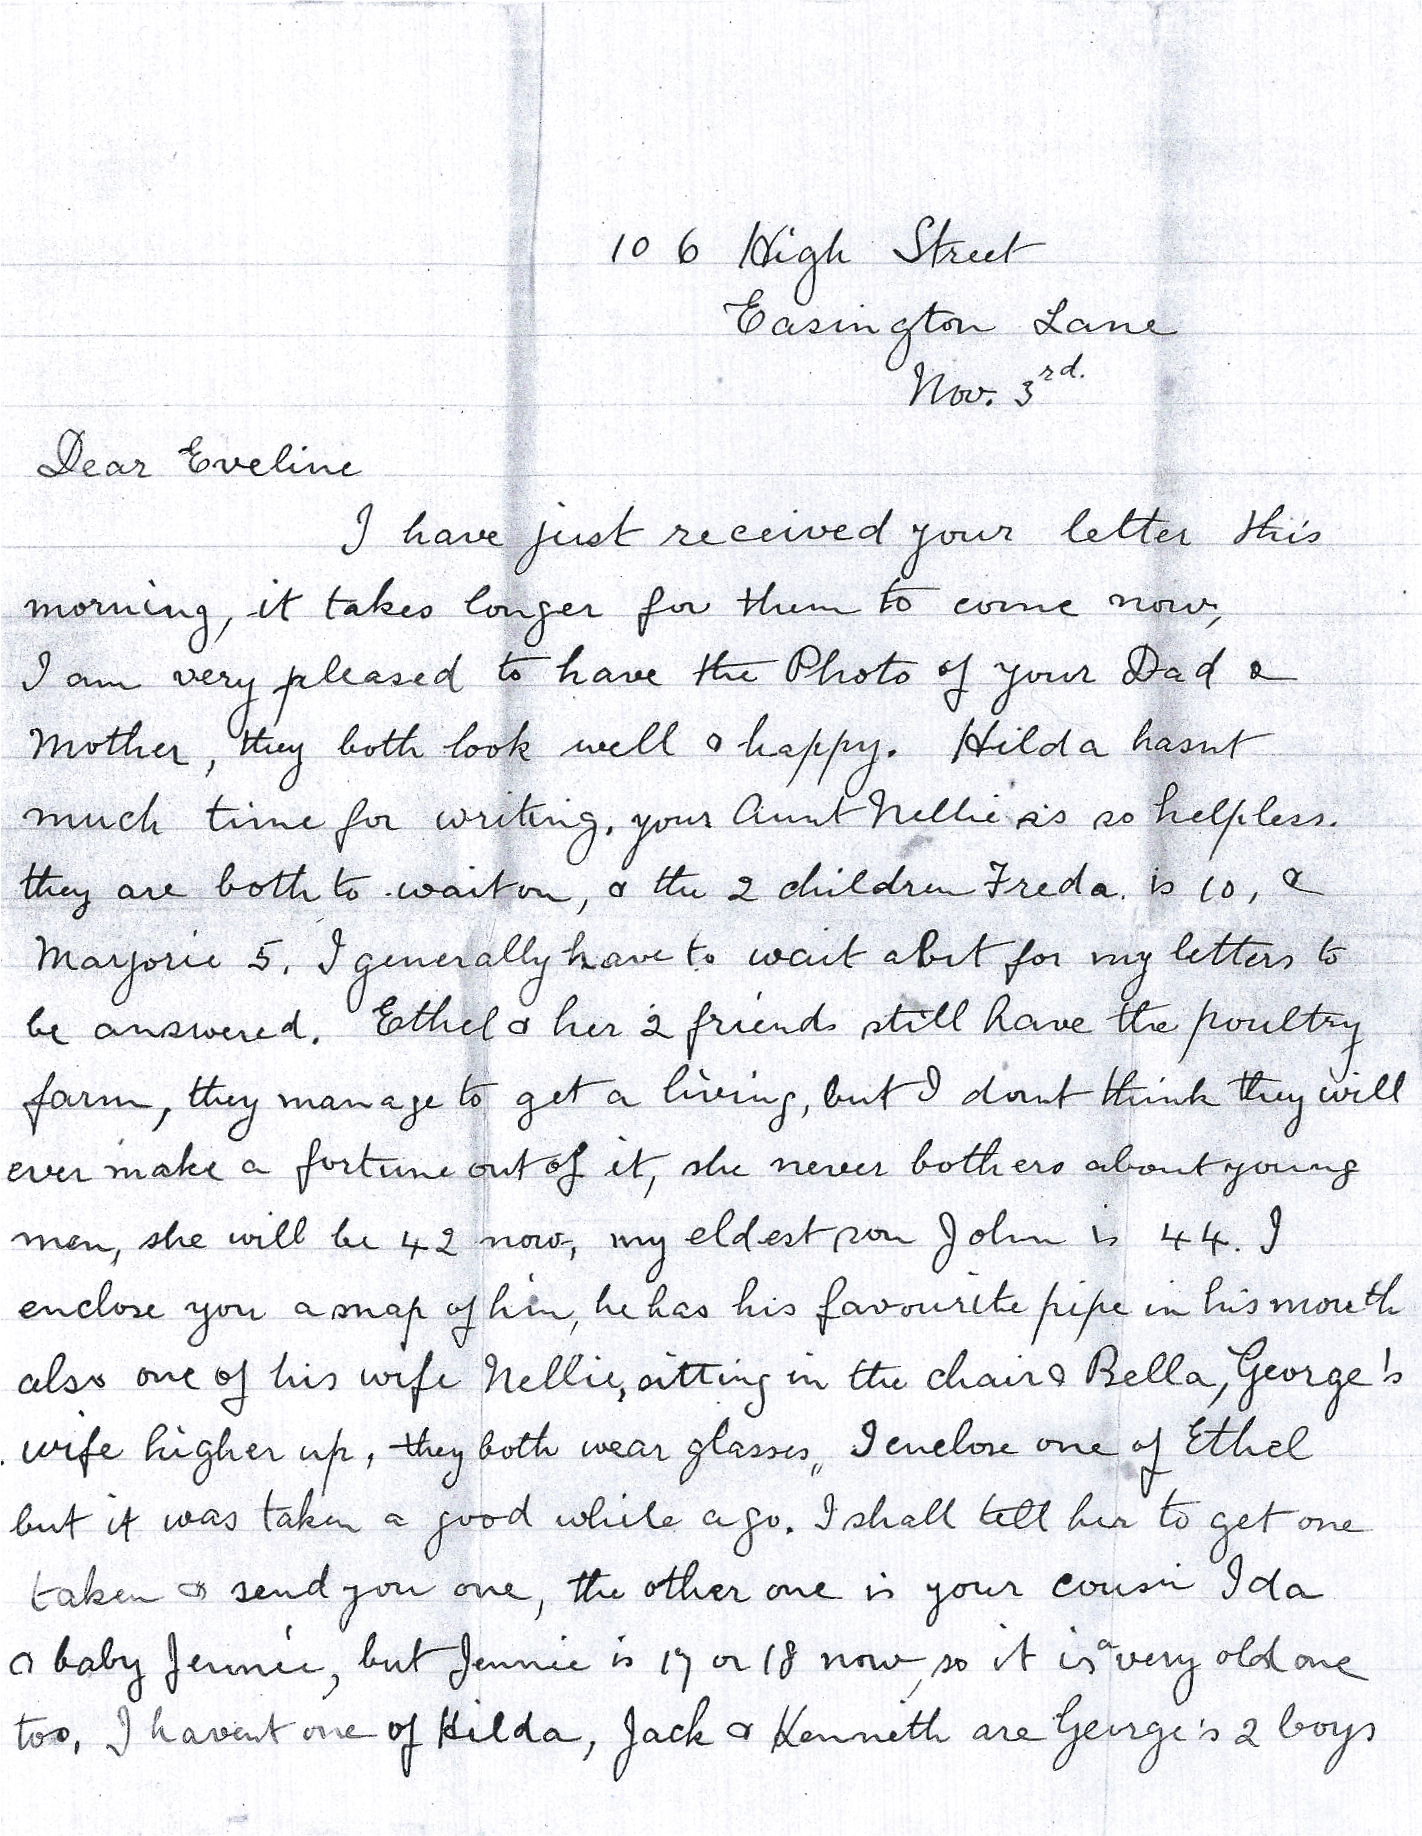 106 High Street
Easington Lane
Nov. 3rd.
Dear Eveline
I have just received your letter this
morning, it takes longer for them to come now,
I am very pleased to have the Photo of your Dad &
Mother, they both look well & happy. Hilda hasnt
much time for writing, your Aunt Nellie is so helpless.
they are both to wait on, & the 2 children Freda is 10, &
Marjorie 5. I generally have to wait a bit for my letters to
be answered. Ethel & her 2 friends still have the poultry
farm, they manage to get a living, but I dont think they will
ever make a fortune out of it, she never bothers about young
men, she will be 42 now, my eldest son John is 44. I
enclose you a snap of him, he has his favourite pipe in his mouth
also one of his wife Nellie, sitting in the chair & Bella, George's
wife higher up, they both wear glasses, I enclose one of Ethel
but it was taken a good while ago. I shall tell her to get one
taken & send you one, the other one is your cousin Ida
& baby Jennie, but Jennie is 17 or 18 now, so it is a very old one
too, I havent one of Hilda, Jack & Kenneth are George's 2 boys